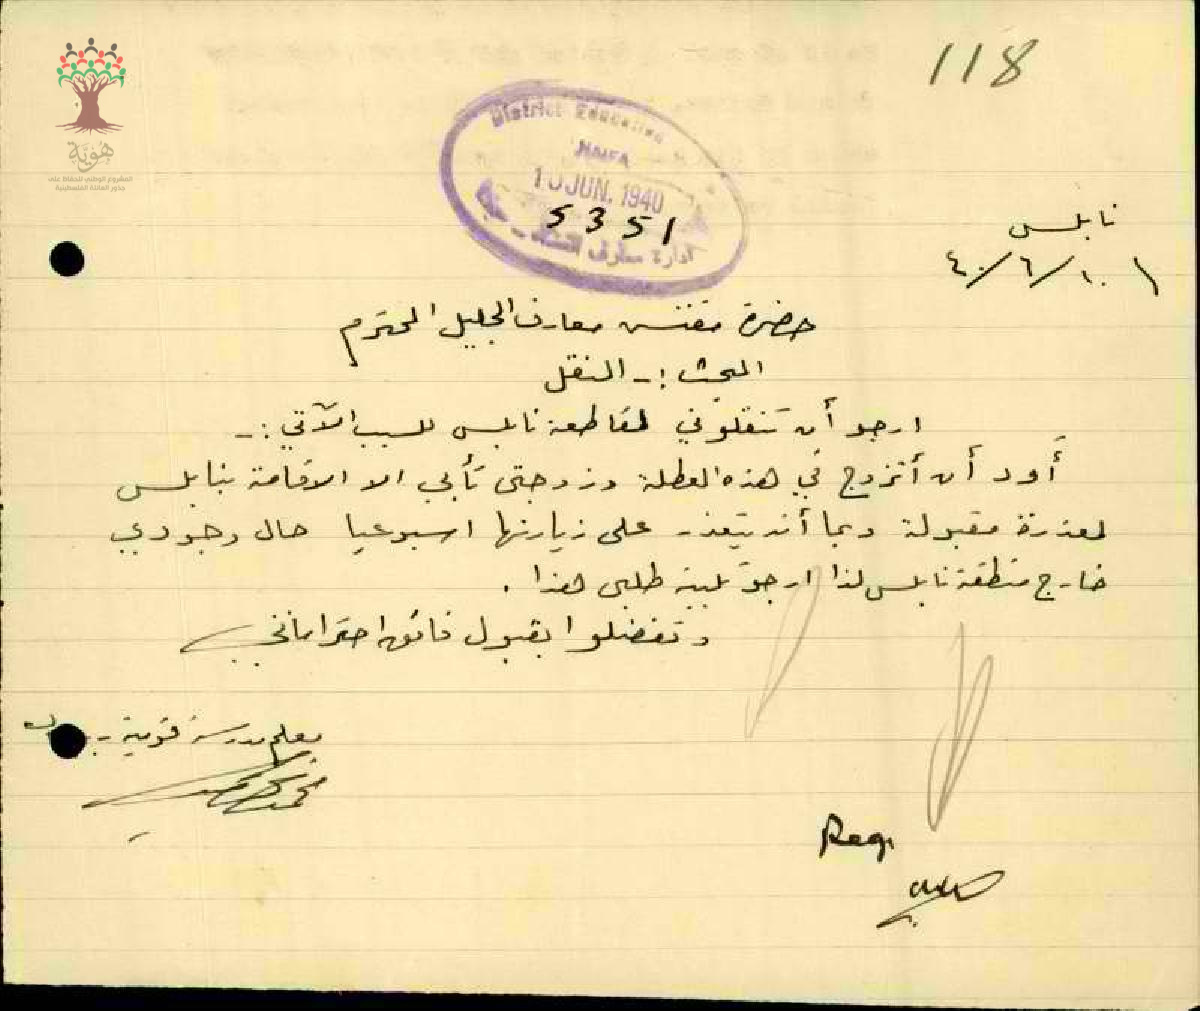 118
هوية
المشروع الوطني للحفاظ على
جذور العائلة الفلسطينية
District Education
HAIFA
10 JUN. 1940
5351
ادارة معارف
نابلس
١٠/٦/٤٠
حضرة مفتش معارف الجليل المحترم
المبحث :- النقل
ارجو أن تنقلوني لمقاطعة نابلس للسبب الآتي :-
أود أن أتزوج في هذه العطلة وزوجتي تأبى الا الاقامة بنابلس
لمعذرة مقبولة وبما أنه يتعذر علي زيارتها اسبوعيا حال وجودي
خارج منطقة نابلس لذا ارجو تلبية طلبي هذا .
وتفضلوا بقبول فائق احتراماتي
معلم مدرسة
Reg.